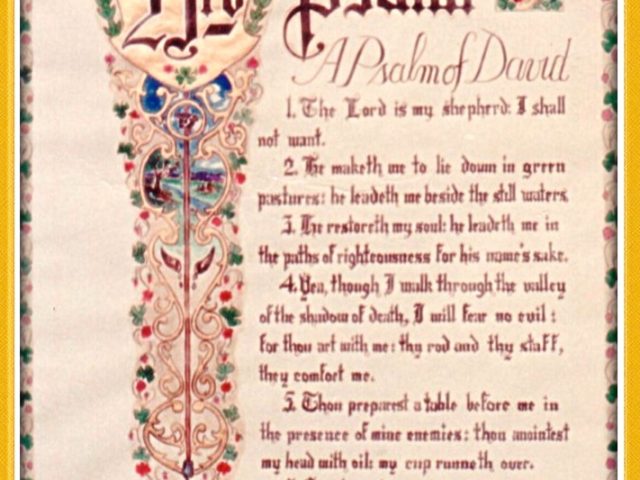 23rd Psalm
A Psalm of David
1. The Lord is my shepherd: I shall
not want.
2. He maketh me to lie down in green
pastures: he leadeth me beside the still waters.
3. He restoreth my soul: he leadeth me in
the paths of righteousness for his name's sake.
4. Yea, though I walk through the valley
of the shadow of death, I will fear no evil:
for thou art with me: thy rod and thy staff,
they comfort me.
5. Thou preparest a table before me in
the presence of mine enemies: thou anointest
my head with oil: my cup runneth over.